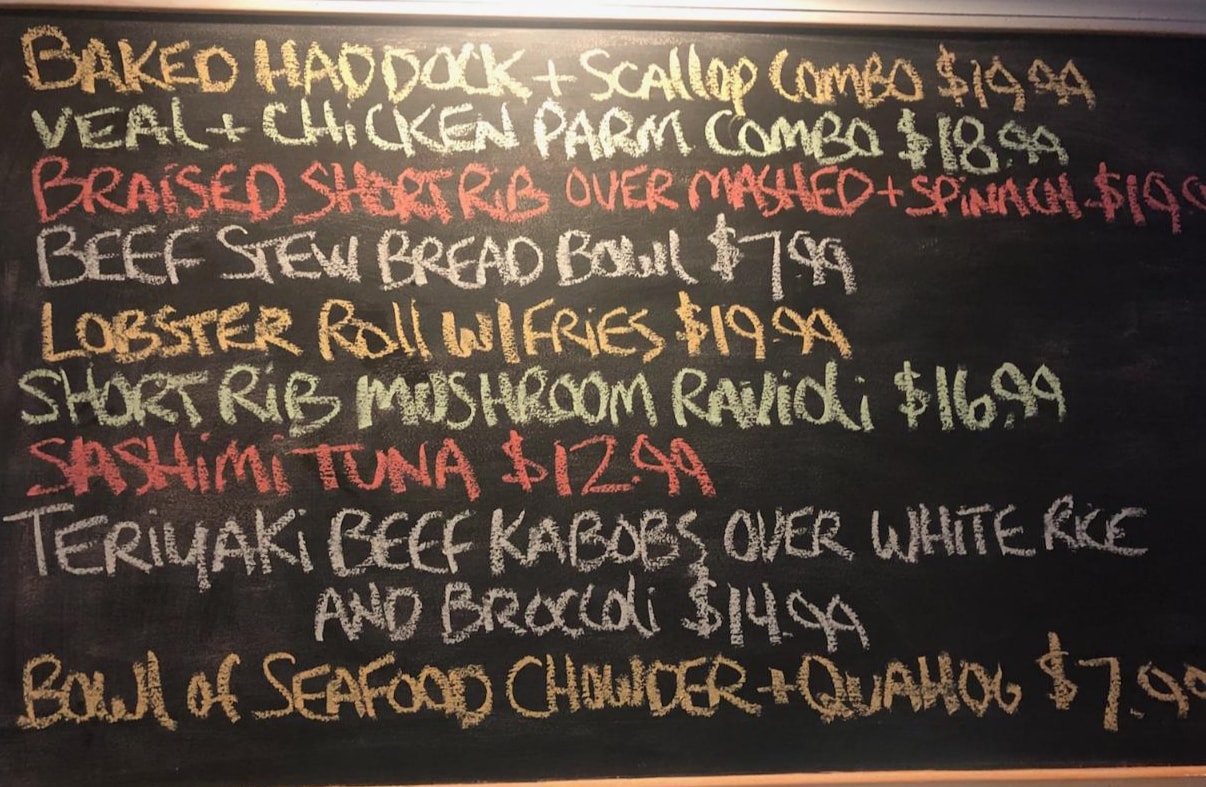 BAKED HADDOCK + Scallop Combo $19.99
VEAL + CHiCKEN PARM COMBO $18.99
BRAiSED SHORT RiB OVER MASHED + SPiNACH $19.9
BEEF STEW BREAD Bowl $7.99
LOBSTER Roll w/ FRiES $19.99
SHORT RiB MUSHROOM RAVioli $16.99
SASHiMi TUNA $12.99
TERiyAKi BEEF KABOBS OVER WHiTE RiCE
AND BROCCOli $14.99
Bowl of SEAFOOD CHOWDER + QUAHOG $7.99